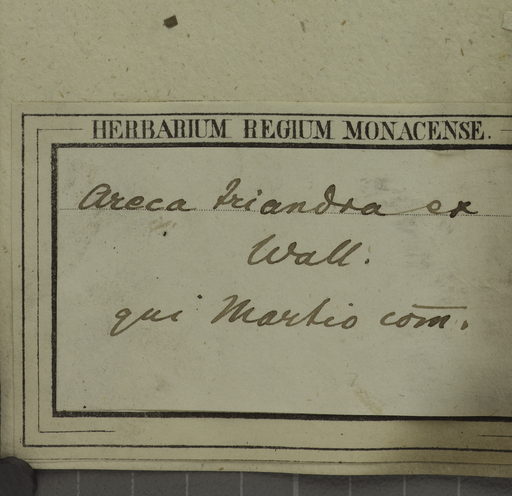 HERBARIUM REGIUM MONACENSE.
Areca triandra ex
Wall.
qui Martio com̅.